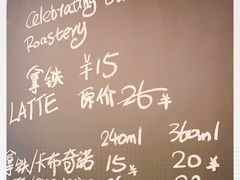 Celebrating
Roastery
拿铁 ¥15
LATTE 原价 26¥
240ml 360ml
拿铁/卡布奇诺 15¥ 20¥